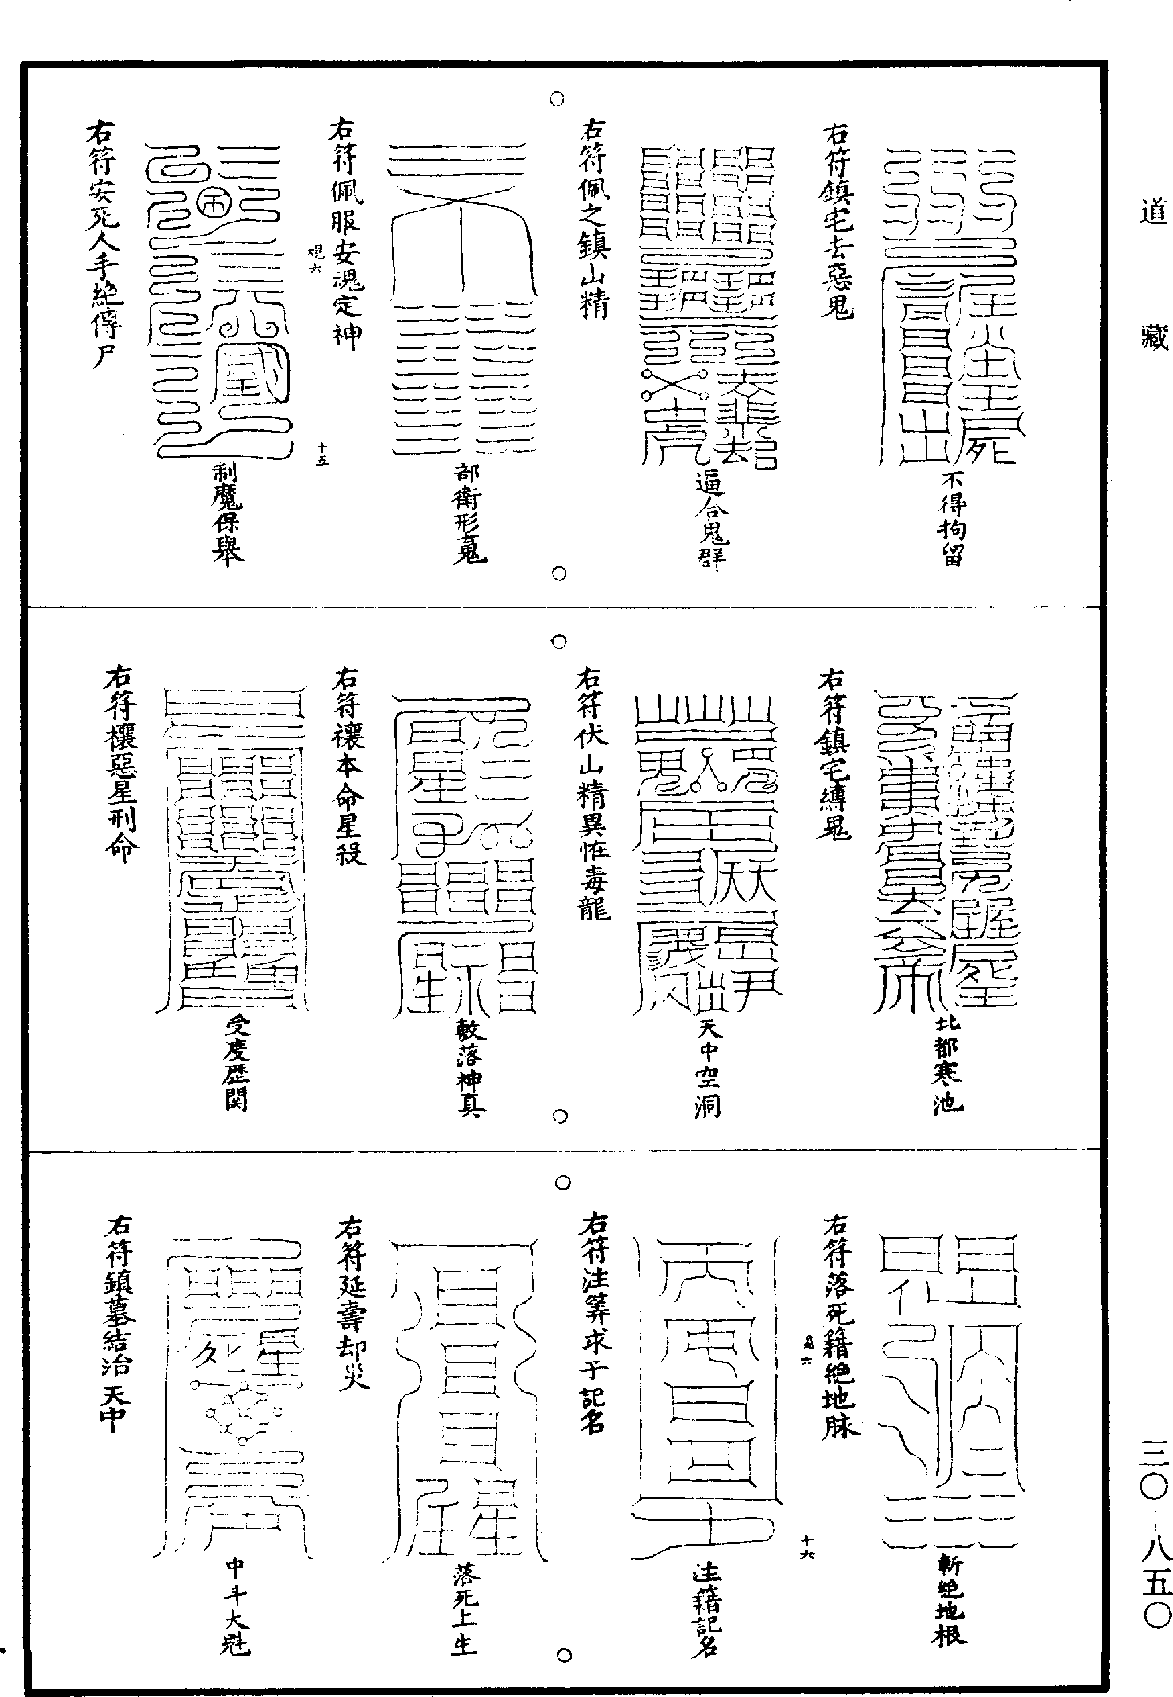 道藏
不得拘留
右符鎮宅去惡鬼
逼合鬼群
右符佩之鎮山精
部衛形魂
右符佩服安魂定神
十五
制魔保舉
右符安死人手絕傳尸
北都寒池
右符鎮宅縛鬼
天中空洞
右符伏山精異恠毒龍
敕落神真
右符禳本命星殺
受度歷関
右符禳惡星刑命
斬絕地根
右符落死籍絕地脉
十六
注籍記名
右符注筭求子記名
落死上生
右符延壽却災
中斗大魁
右符鎮墓結治天中
三〇-八五〇